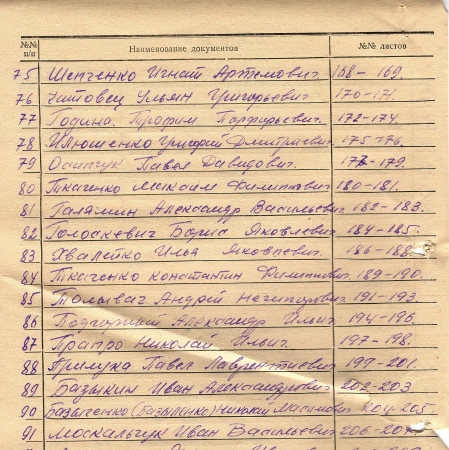 №№ п/п Наименование документов №№ листов
75 Шевченко Игнат Артемович 168-169.
76 Титовец Ульян Григорьевич 170-171.
77 Година Трофим Порфирьевич 172-174.
78 Илюшенко Григорий Дмитриевич 175-176.
79 Осипчук Павел Давидович 177-179.
80 Ткаченко Максим Филиппович 180-181.
81 Галямин Александр Васильевич 182-183.
82 Голоскевич Борис Яковлевич 184-185.
83 Хвалейко Илья Яковлевич. 186-188.
84 Ткаченко Константин Филиппович 189-190.
85 Толывач Андрей Нечипорович 191-193.
86 Подгурный Александр Ильич 194-196.
87 Прапро Николай Ильич 197-198.
88 Прилука Павел Лаврентиевич 199-201.
89 Базыкин Иван Александрович 202-203
90 Базыленко (Базыленко) Николай Максимович 204-205
91 Москальчук Иван Васильевич 206-207.